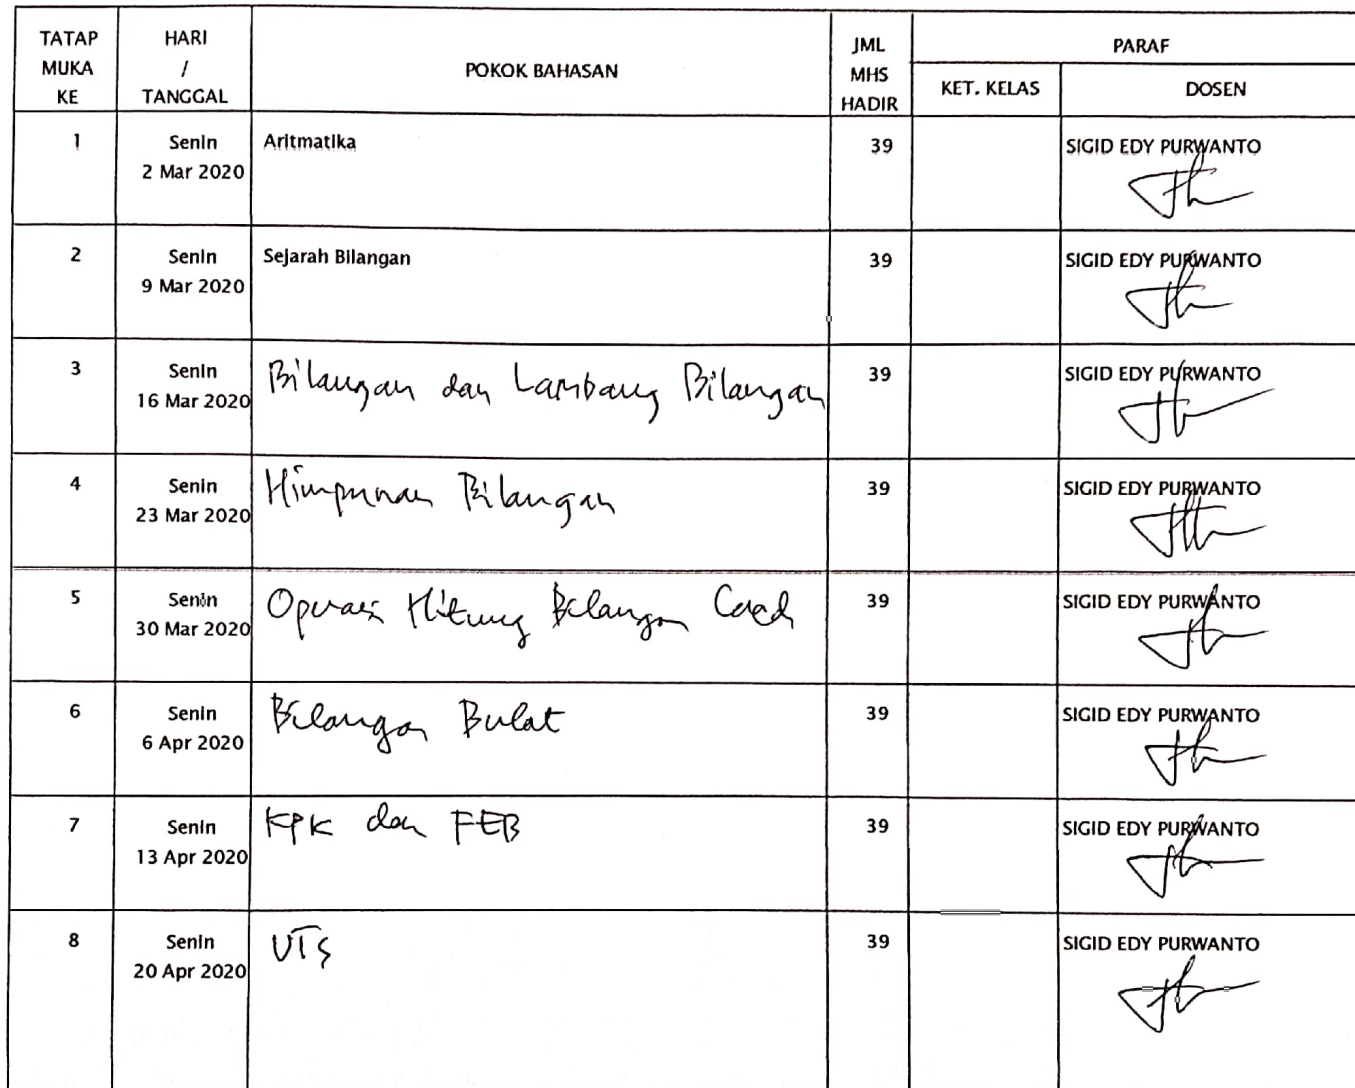 TATAP MUKA KE
HARI / TANGGAL
POKOK BAHASAN
JML MHS HADIR
PARAF
KET. KELAS
DOSEN
1
Senin
2 Mar 2020
Aritmatika
39
SIGID EDY PURWANTO
2
Senin
9 Mar 2020
Sejarah Bilangan
39
SIGID EDY PURWANTO
3
Senin
16 Mar 2020
Bilangan dan Lambang Bilangan
39
SIGID EDY PURWANTO
4
Senin
23 Mar 2020
Himpunan Bilangan
39
SIGID EDY PURWANTO
5
Senin
30 Mar 2020
Operasi Hitung Bilangan Cacah
39
SIGID EDY PURWANTO
6
Senin
6 Apr 2020
Bilangan Bulat
39
SIGID EDY PURWANTO
7
Senin
13 Apr 2020
KPK dan FEB
39
SIGID EDY PURWANTO
8
Senin
20 Apr 2020
UTS
39
SIGID EDY PURWANTO